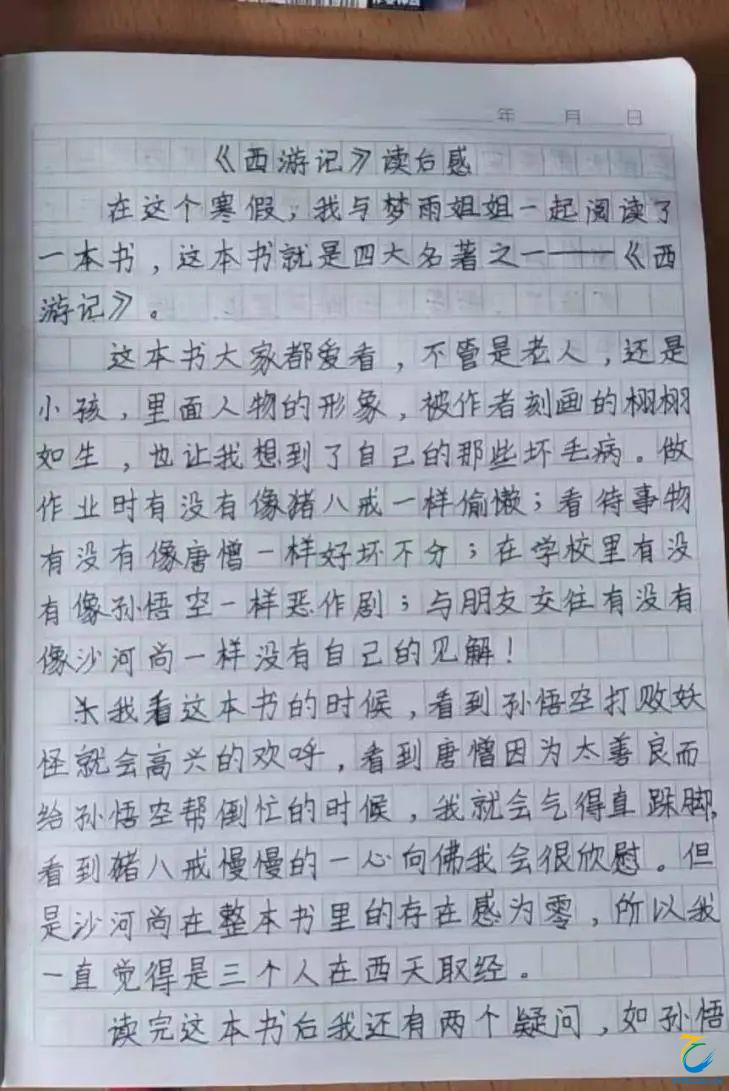 年 月 日
《西游记》读后感
在这个寒假,我与梦雨姐姐一起阅读了
一本书,这本书就是四大名著之一——《西
游记》。
这本书大家都爱看,不管是老人,还是
小孩,里面人物的形象,被作者刻画的栩栩
如生,也让我想到了自己的那些坏毛病。做
作业时有没有像猪八戒一样偷懒;看待事物
有没有像唐憎一样好坏不分;在学校里有没
有像孙悟空一样恶作剧;与朋友交往有没有
像沙河尚一样没有自己的见解!
我看这本书的时候,看到孙悟空打败妖
怪就会高兴的欢呼,看到唐憎因为太善良而
给孙悟空帮倒忙的时候,我就会气得直跺脚,
看到猪八戒慢慢的一心向佛我会很欣慰。但
是沙河尚在整本书里的存在感为零,所以我
一直觉得是三个人在西天取经。
读完这本书后我还有两个疑问,如孙悟